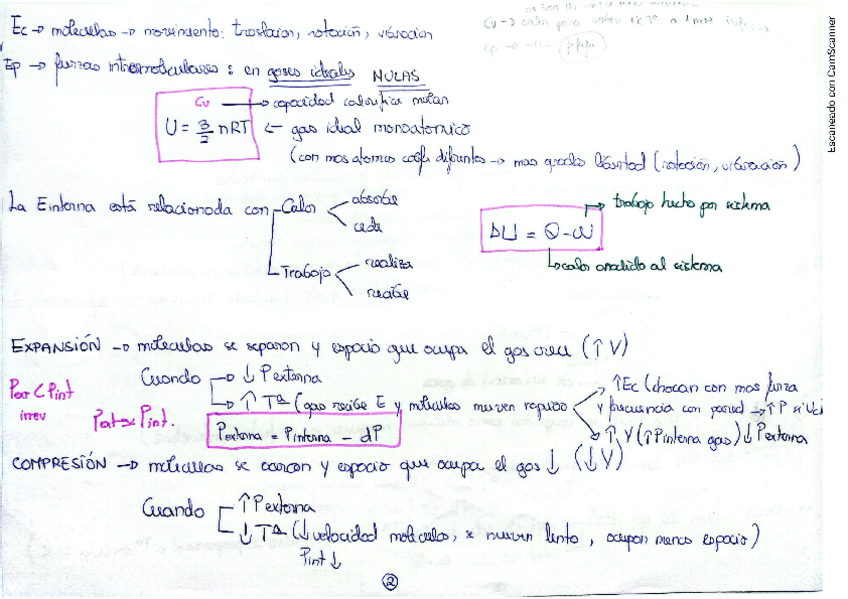 Ec → moleculas → movimiento: traslacion, rotación, vibracion
Cv → calor para 1 mol
Ep → fuerzas intermoleculares: en gases ideales NULAS
Cp →
Escaneado con CamScanner
Cv → capacidad calorifica molar
U = 3/2 nRT ← gas ideal monoatomico
(con mas atomos coefi difrentes → mas grados libertad (rotación, vibracion)
La Einterna está relacionada con Calor absorbe
cede
Trabajo realiza
recibe
ΔU = Q - W
trabajo hecho por sistema
calor añadido al sistema
EXPANSIÓN → moleculas se separan y espacio que ocupa el gas crece (↑V)
Cuando → ↓ Pexterna
→ ↑ Tª (gas recibe E y moleculas mueven rapido
↑Ec (chocan con mas furza
y frecuencia con pared → ↑P
↑V (↑Pinterna gas) ↓ Pexterna
Pext < Pint
irrev
Pext ≃ Pint.
Pexterna = Pinterna - dP
COMPRESIÓN → moleculas se acercan y espacio que ocupa el gas ↓ (↓V)
Cuando ↑ Pexterna
↓ Tª (↓velocidad moleculas, se mueven lento, ocupan menos espacio)
Pint ↓
2